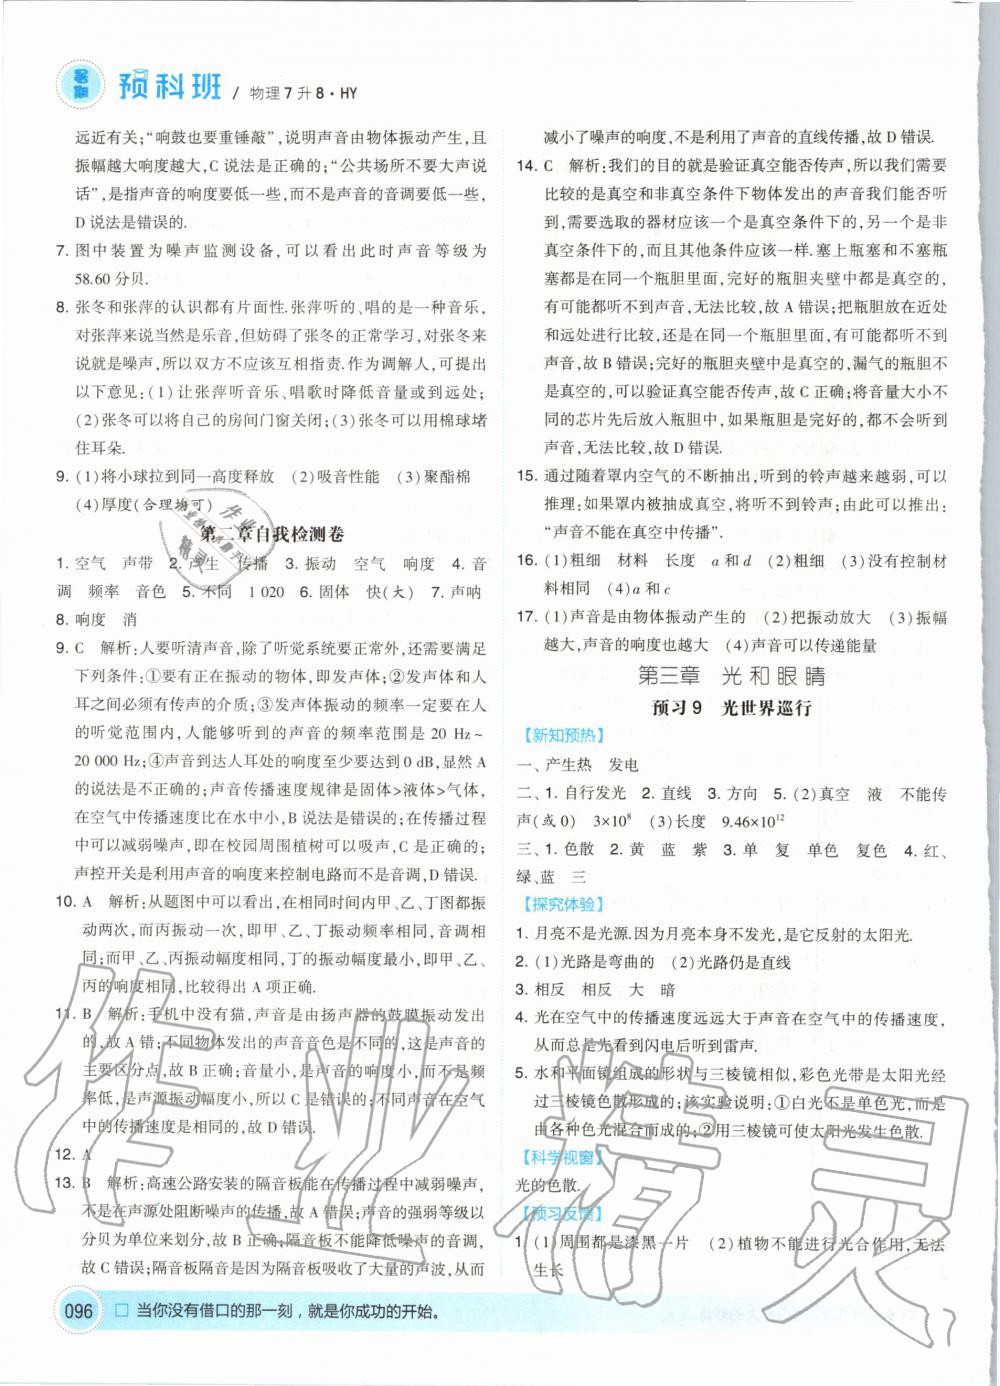 暑期 预科班 / 物理7升8·HY
远近有关；“响鼓也要重锤敲”，说明声音由物体振动产生，且
振幅越大响度越大，C 说法是正确的；“公共场所不要大声说
话”，是指声音的响度要低一些，而不是声音的音调要低一些，
D 说法是错误的.
7. 图中装置为噪声监测设备，可以看出此时声音等级为
58.60 分贝.
8. 张冬和张萍的认识都有片面性.张萍听的、唱的是一种音乐，
对张萍来说当然是乐音，但妨碍了张冬的正常学习，对张冬来
说就是噪声，所以双方不应该互相指责.作为调解人，可提出
以下意见：(1)让张萍听音乐、唱歌时降低音量或到远处；
(2)张冬可以将自己的房间门窗关闭；(3)张冬可以用棉球堵
住耳朵.
9. (1)将小球拉到同一高度释放 (2)吸音性能 (3)聚酯棉
(4)厚度(合理均可)
第二章自我检测卷
1. 空气 声带 2. 产生 传播 3. 振动 空气 响度 4. 音
调 频率 音色 5. 不同 1 020 6. 固体 快(大) 7. 声呐
8. 响度 消
9. C 解析：人要听清声音，除了听觉系统要正常外，还需要满足
下列条件：①要有正在振动的物体，即声源；②声源和人
耳之间必须有传声的介质；③声源振动的频率一定要在人
的听觉范围内，人能感受到的声音的频率范围是 20 Hz～
20 000 Hz；④声音到达人耳处的响度至少要达到 0 dB，显然 A
的说法是不正确的；声音传播速度规律是固体＞液体＞气体，
在空气中传播速度比在水中小，B 说法是错误的；在传播过程
中可以减弱噪声，即在校园周围植树可以吸声，C 是正确的；
声控开关是利用声音的响度来控制电路而不是音调，D 错误.
10. A 解析：从题图中可以看出，在相同时间内甲、乙、丁图都振
动两次，而丙振动一次，即甲、乙、丁振动频率相同，音调相
同；而甲、乙、丙振动幅度一致，丁振动的幅度最小，即甲、乙、丙
的响度相同，比较得出 A 项正确.
11. B 解析：手机中没有猫，声音是由扬声器的鼓膜振动发出
的，故 A 错；不同物体发出的声音音色是不同的，这是声音的
主要区分点，故 B 正确；音量大小是指声音的响度，而不是频
率低，是声源振动幅度小，所以 C 是错误的；不同声音在空气
中的传播速度是相同的，故 D 错误.
12. A
13. B 解析：高速公路安装的隔音板能在传播过程中减弱噪声，
不是在声源处阻断噪声的传播，故 A 错误；声音的强弱等级以
分贝为单位来划分，故 B 正确；隔音板不能降低噪声的音调，
故 C 错误；隔音板隔音是因为其吸收了大量的声波，从而
减小了噪声的响度，不是利用了声音的直线传播，故 D 错误.
14. C 解析：我们的目的就是验证真空能否传声，所以我们需要
比较的是真空和非真空条件下物体发出的声音我们能否听
到，需要选取的器材应该一个是真空条件下的，另一个是非
真空条件下的，而其他条件应该一样.塞上瓶塞和不塞瓶
塞都是在一个瓶胆里面，完好的瓶胆夹壁中都是真空的，
有可能都听不到声音，无法比较，故 A 错误；把瓶胆放在近处
和远处进行比较，还是在同一个瓶胆里面，有可能都听不到
声音，故 B 错误；完好的瓶胆夹壁中是真空的，漏气的瓶胆不
是真空的，可以验证真空能否传声，故 C 正确；将音量大小不
同的芯片先后放入瓶胆中，如果瓶胆是完好的，都可能听不到
声音，无法比较，故 D 错误.
15. 通过随着罩内空气的不断抽出，听到的铃声越来越弱，可以
推理：如果罩内被抽成真空，将听不到铃声，由此可以推出：
“声音不能在真空中传播”.
16. (1)粗细 材料 长度 a 和 d (2)粗细 (3)没有控制材
料相同 (4)a 和 c
17. (1)声音是由物体振动产生的 (2)把振动放大 (3)振幅
越大，声音的响度也越大 (4)声音可以传递能量
第三章 光和眼睛
预习9 光世界巡行
【新知预热】
一、产生热 发电
二、1. 自行发光 2. 直线 3. 方向 5. (2)真空 液 不能传
声(或 0) 3×10⁸ (3)长度 9.46×10¹²
三、1. 色散 2. 黄 蓝 紫 3. 单 复 单色 复色 4. 红、
绿、蓝 三
【探究体验】
1. 月亮不是光源.因为月亮本身不发光，是它反射的太阳光.
2. (1)光路是弯曲的 (2)光路仍是直线
3. 相反 相反 大 暗
4. 光在空气中的传播速度远远大于声音在空气中的传播速度，
从而总是看到闪电后听到雷声.
5. 水和平面镜组成的形状与三棱镜相似，彩色光带是太阳光经
过三棱镜色散形成的；该实验说明：①白光不是单色光，而是
由各种色光混合而成的；②用三棱镜可使太阳光发生色散.
【科学视窗】
光的色散.
【预习反馈】
1. (1)周围都是漆黑一片 (2)植物不能进行光合作用，无法
生长
096 □ 当你没有借口的那一刻，就是你成功的开始。
作业精灵